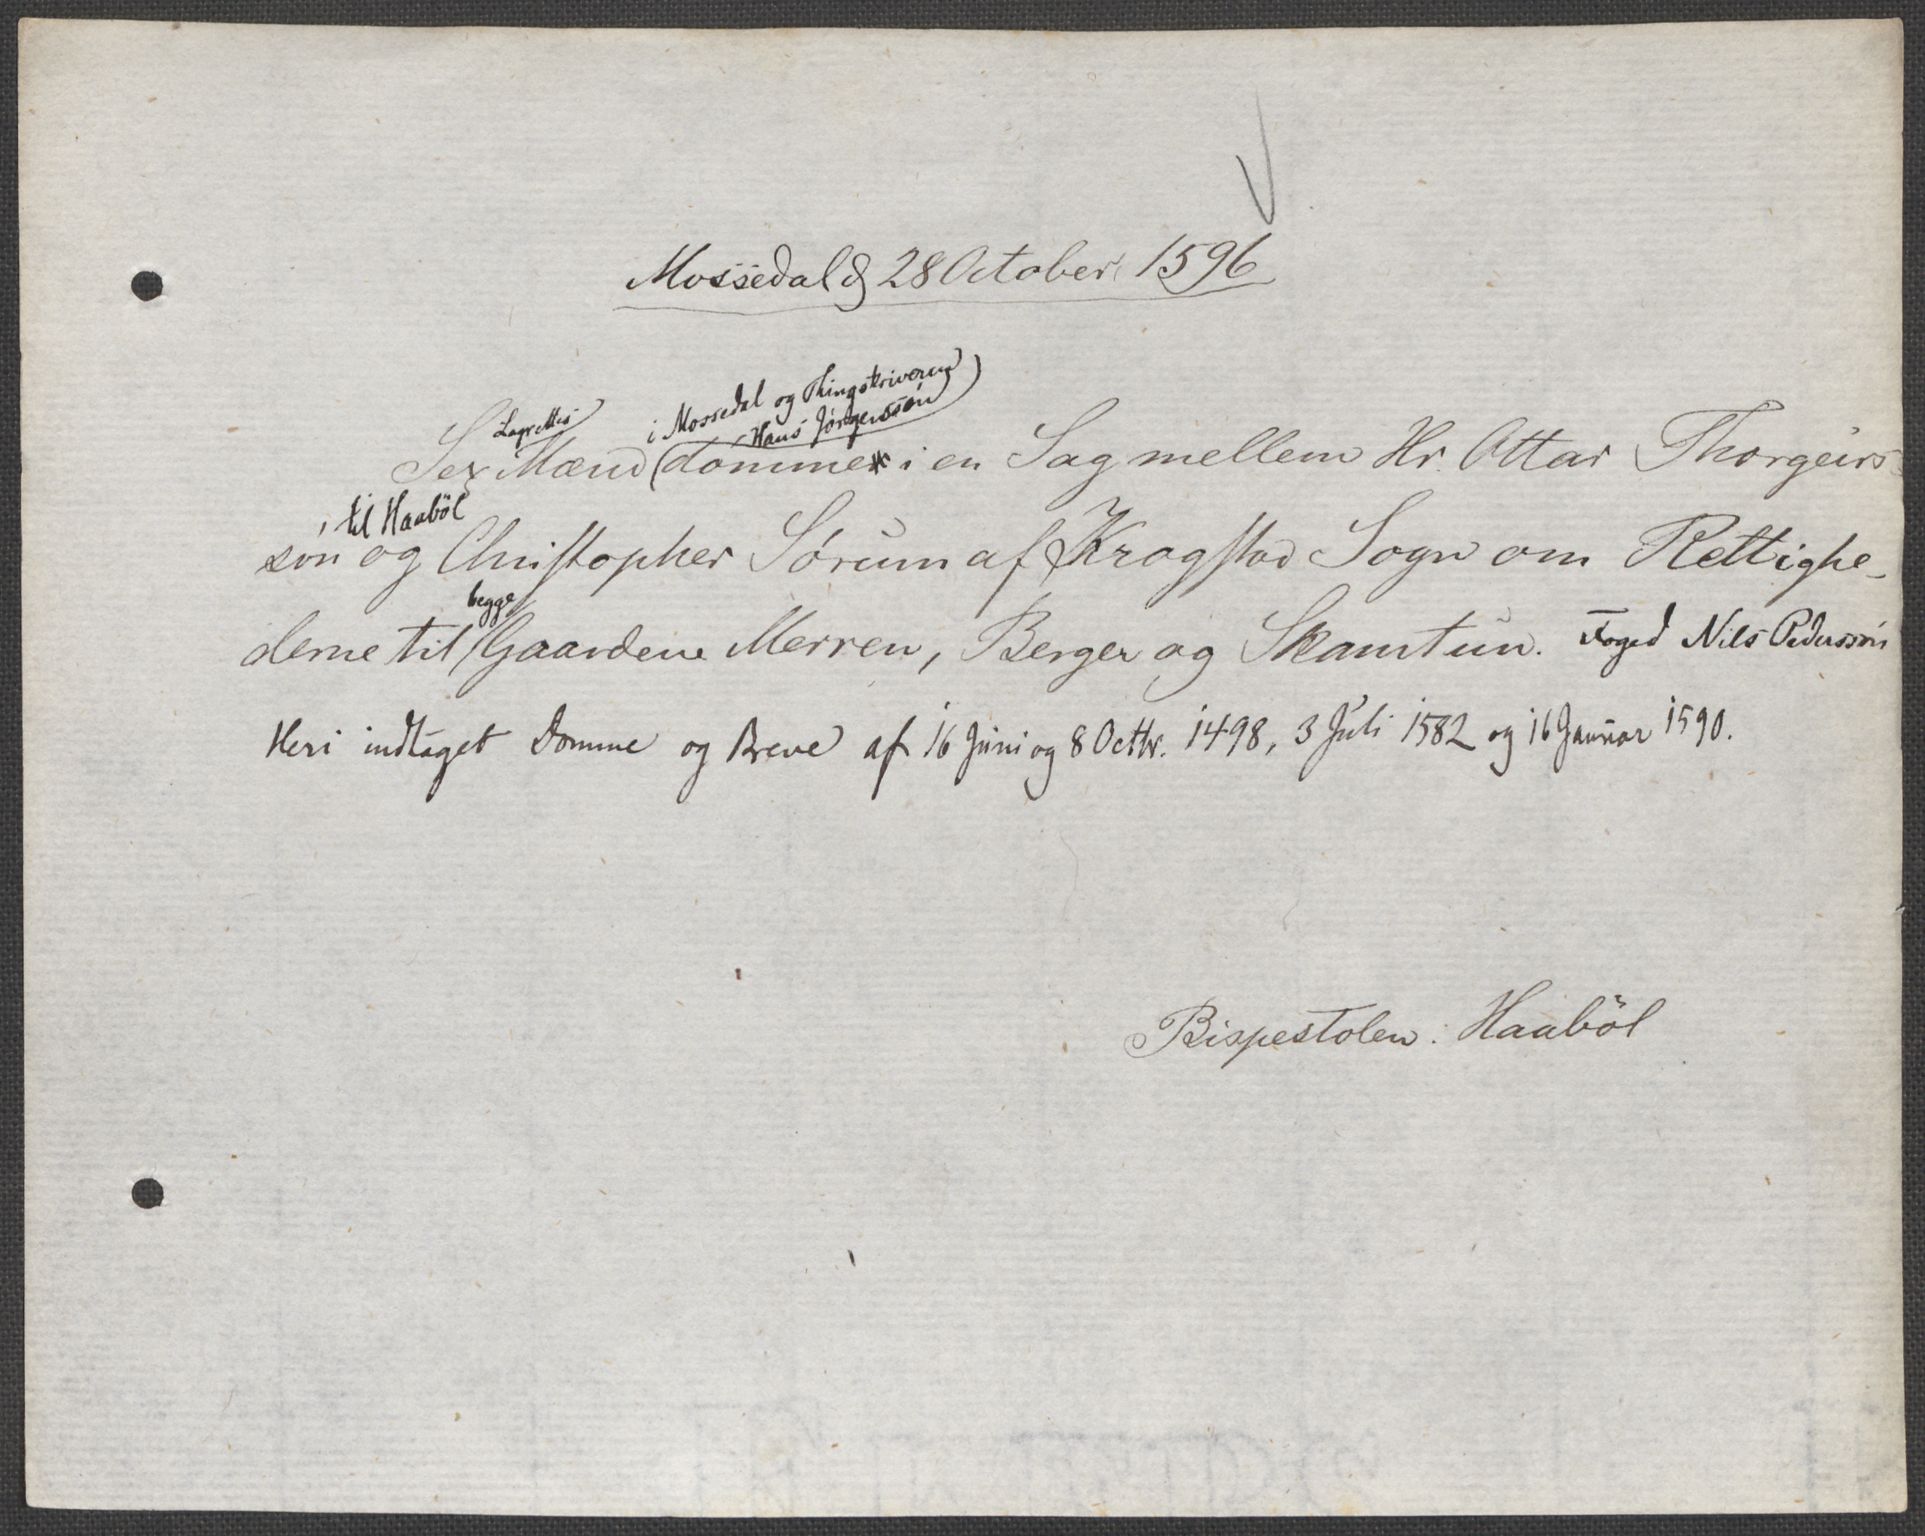 Mossedal d 28 October 1596
Sex Lagrettes Mænd (i Mossedal og Thingskriveren Hans Jörgenssön) dömme i en Sag mellem Hr. Ottar Thorgeirs-
sön til Haaböl og Christopher Sörum af Krogstad Sogn om Rettighe-
derne til begge Gaardene Merren, Berger og Skamtun. Foged Nils Pederssön
Heri indtaget Domme og Breve af 16 Juni og 8 Octbr. 1498, 3 Juli 1582 og 16 Januar 1590.
Bispestolen. Haaböl